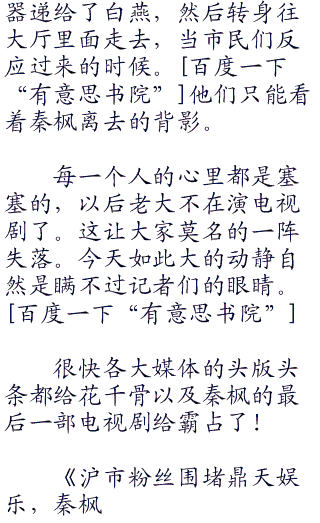 器递给了白燕，然后转身往
大厅里面走去，当市民们反
应过来的时候。[百度一下
“有意思书院”]他们只能看
着秦枫离去的背影。
每一个人的心里都是塞
塞的，以后老大不在演电视
剧了。这让大家莫名的一阵
失落。今天如此大的动静自
然是瞒不过记者们的眼睛。
[百度一下“有意思书院”]
很快各大媒体的头版头
条都给花千骨以及秦枫的最
后一部电视剧给霸占了！
《沪市粉丝围堵鼎天娱
乐，秦枫